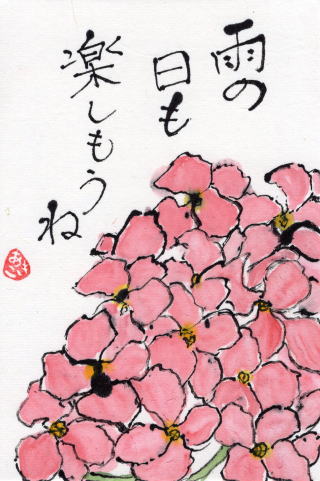 雨の
日も
楽しもうね